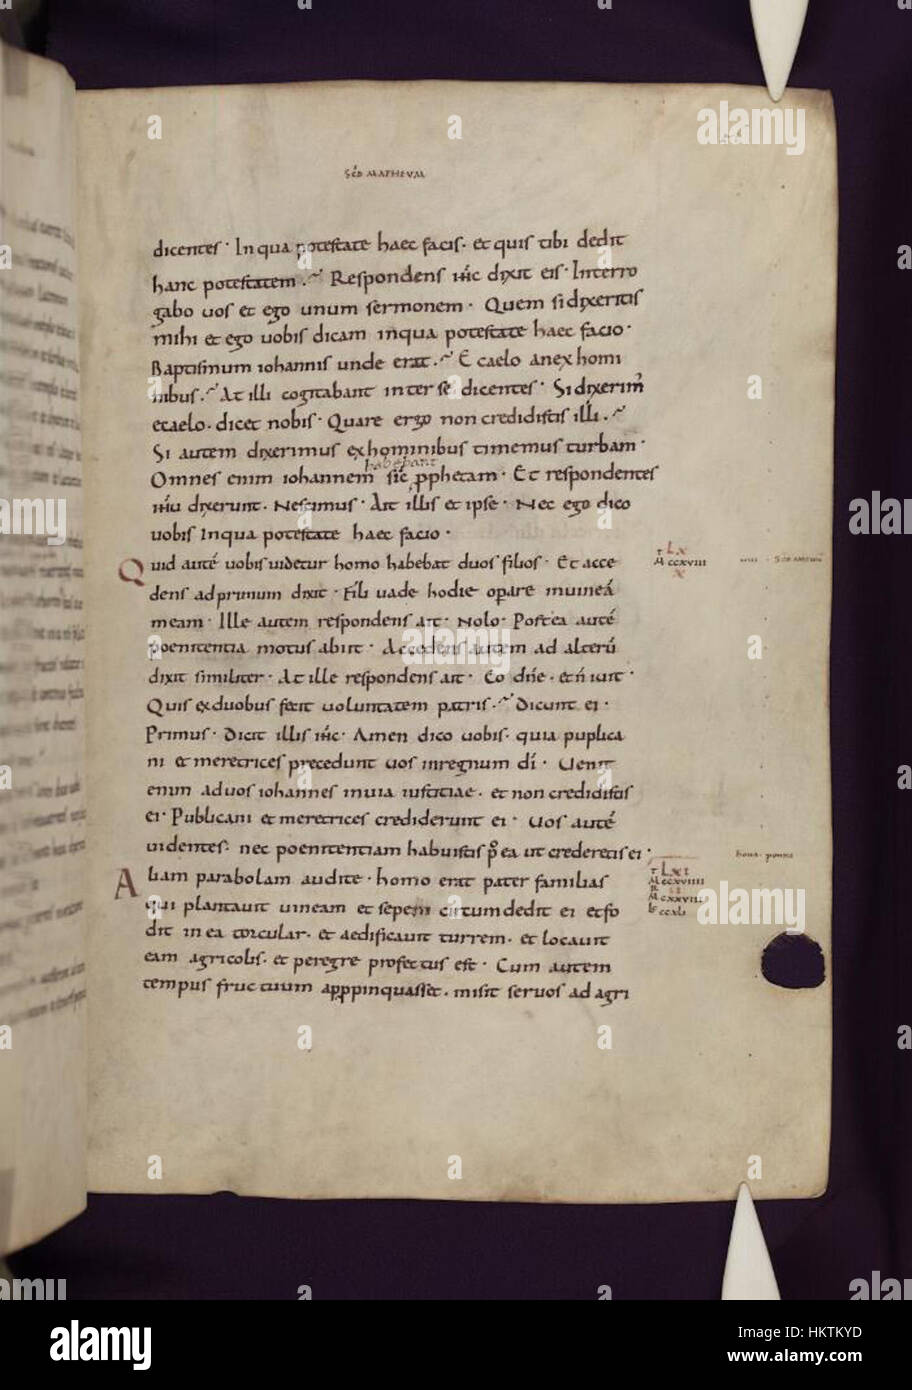 SCD MATHEUM
dicentes · In qua potestate haec facis · et quis tibi dedit
hanc potestatem · Respondens ihc dixit eis · Interro
gabo uos et ego unum sermonem · Quem si dixeritis
mihi et ego uobis dicam in qua potestate haec facio ·
Baptismum iohannis unde erat · E caelo an ex homi
nibus · At illi cogitabant inter se dicentes · Si dixerim
e caelo · dicet nobis · Quare ergo non credidistis illi ·
Si autem dixerimus ex hominibus timemus turbam ·
habebant
Omnes enim iohannem sic pphetam · Et respondentes
ihu dixerunt · Nescimus · Ait illis et ipse · Nec ego dico
uobis In qua potestate haec facio ·
Quid autē uobis uidetur homo habebat duos filios · Et acce
dens ad primum dixit · Fili uade hodie operare in uineā
meam · Ille autem respondens ait · Nolo · Postea autē
poenitentia motus abiit · Accedens autem ad alterū
dixit similiter · At ille respondens ait · Eo dn̄e · et n̄ iuit ·
Quis ex duobus fecit uoluntatem patris · Dicunt ei ·
Primus · Dicit illis ihc · Amen dico uobis · quia puplica
ni et meretrices precedunt uos in regnum dī · Uenit
enim ad uos iohannes in uia iustitiae · et non credidistis
ei · Publicani et meretrices crediderunt ei · Uos autē
uidentes · nec poenitentiam habuistis p̄ ea ut crederetis ei ·
Aliam parabolam audite · homo erat pater familias
qui plantauit uineam et sepem circumdedit ei et fo
dit in ea torcular · et aedificauit turrem · et locauit
eam agricolis · et peregre profectus est · Cum autem
tempus fructuum appropinquasset · misit seruos ad agri
LX
M CCXVIII
X
LXI
M CCXVIIII
M CXXVIII
CCXLI
alamy
Image ID: HKTKYD
www.alamy.com